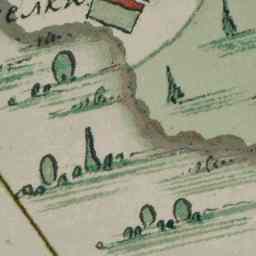 елки